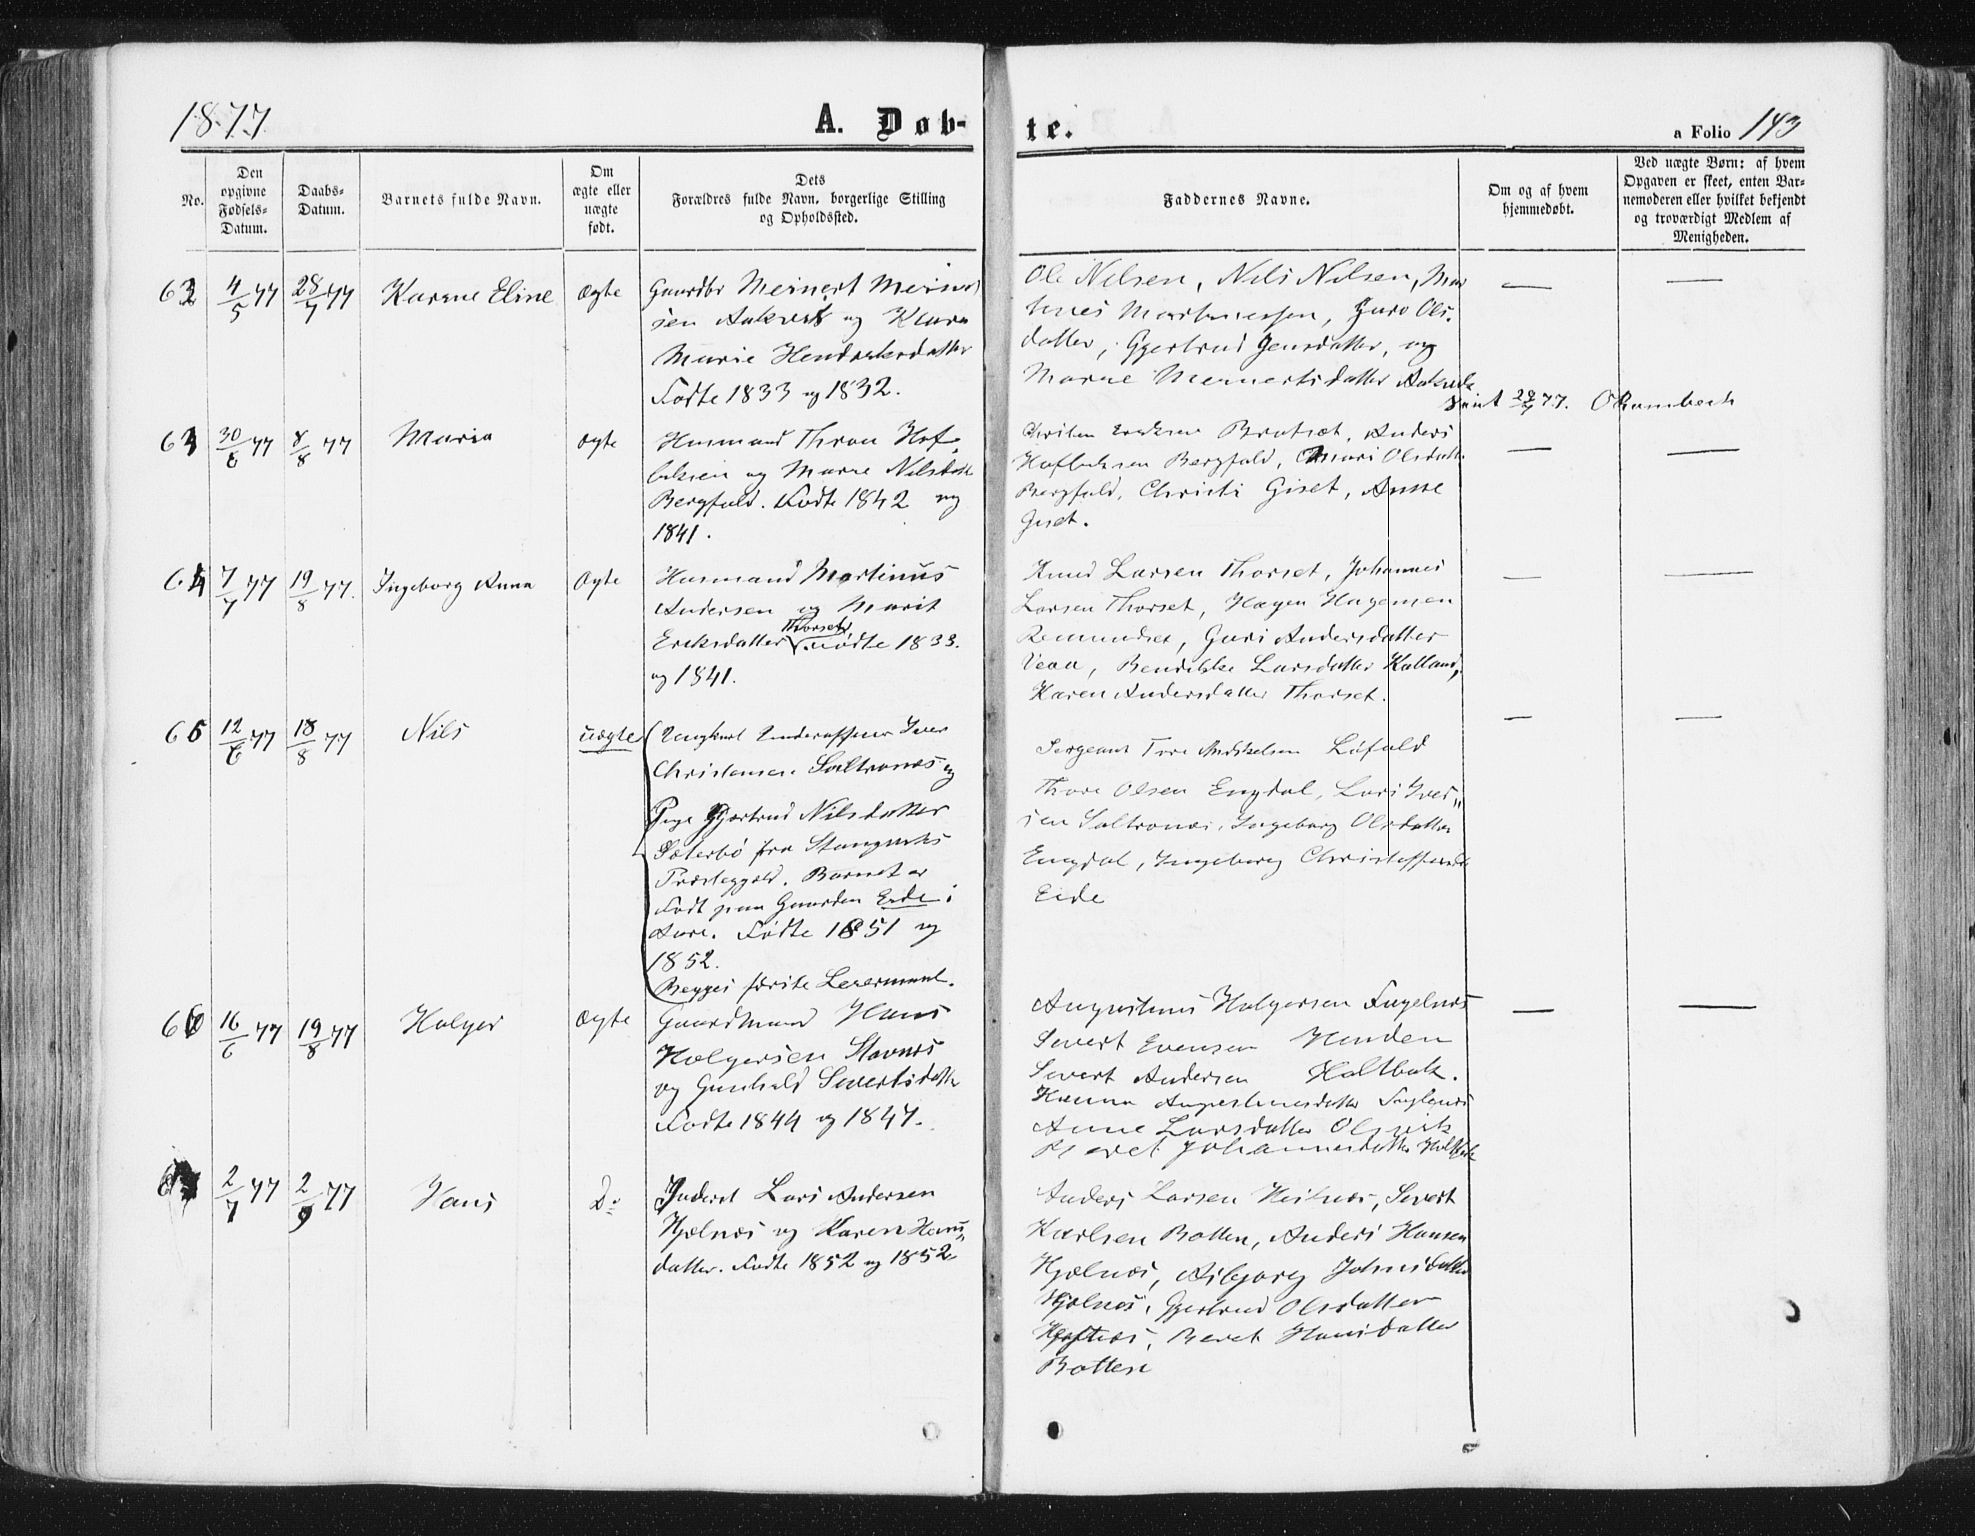 1877. A. Døb-
te. a Folio 143
No. Den opgivne Fødsels-Datum. Daabs-Datum. Barnets fulde Navn. Om ægte eller uægte født. Dets Forældres fulde Navn, borgerlige Stilling og Opholdssted.
Faddernes Navne. Om og af hvem hjemmedøbt. Ved uægte Børn: af hvem Opgaven er skeet, enten Barnemoderen eller hvilket bekjendt og troværdigt Medlem af Menigheden.
62 4/5 77 28/7 77 Karene Eline ægte Gaardbr Meinert Meinert
sen Aakvik og Klara
Marie Hendriksdatter
Fødte 1833 og 1832.
Ole Nilsen, Nils Nilsen, Mar
tines Martinessen, Guro Ols.
datter, Gjertrud Jensdatter, og
Marie Meinertsdatter Aakvik
77.
63 30/6 77 8/8 77 Maria ægte Husmand Thron Hof
og Nilsdatt
Bergfald. Fødte 1842 og
1841.
Bratset, Anders
Bergfald, Mari Olsdatt
Bergfald, Christi Giset, Anne
Giset.
64 7/7 77 19/8 77. Ingeborg Anna ægte Husmand Martinus
Andersen og Marit
Eriksdatter Thorset. Fødte 1833.
og 1841.
Knud Larsen Thorset, Johannes
Larsen Thorset, Hagen Hagensen
Remundset, Guri Andersdatter
Larsdatter
Karen Andersdatter Thorset.
65 12/6 77 18/8 77 Nils uægte Ungkarl Underofficer Iver
Christensen Saltrønes og
Pige Gjertrud Nilsdatter
Sæterbø fra Stangviks
Præstegjeld. Barnet er
Født paa Gaarden Eide i
Aure. Fødte 1851 og
1852.
Begges første Leiermaal.
Sergeant Løfald
Thore Olsen Engdal, Lars Iver„
sen Saltrønes, Ingeborg Olsdatter
Engdal, Ingeborg
Eide
66 16/6 77 19/8 77 Holger ægte Gaardmand Hans
Holgersen Stavnes
og Gunhild Sivertsdatter
Fødte 1844 og 1847.
Augustinus Holgersen Fuglenes
Sivert Evensen Henden
Sivert Andersen Holtbak.
Hanna
Anne Larsdatter Olsvik
Beret Johannesdatter
2/7 77 2/9 77 Hans Do Inderst Lars Andersen
Hjelnes og Karen Hans„
datter. Fødte 1852 og 1852
Anders Larsen Sivert
Karlsen Botten, Anders Hansen
Hjelnes, Asbjørg Johnsdatter
Hjelnes, Gjertrud Olsdatter
Beret Hansdatter
Botten